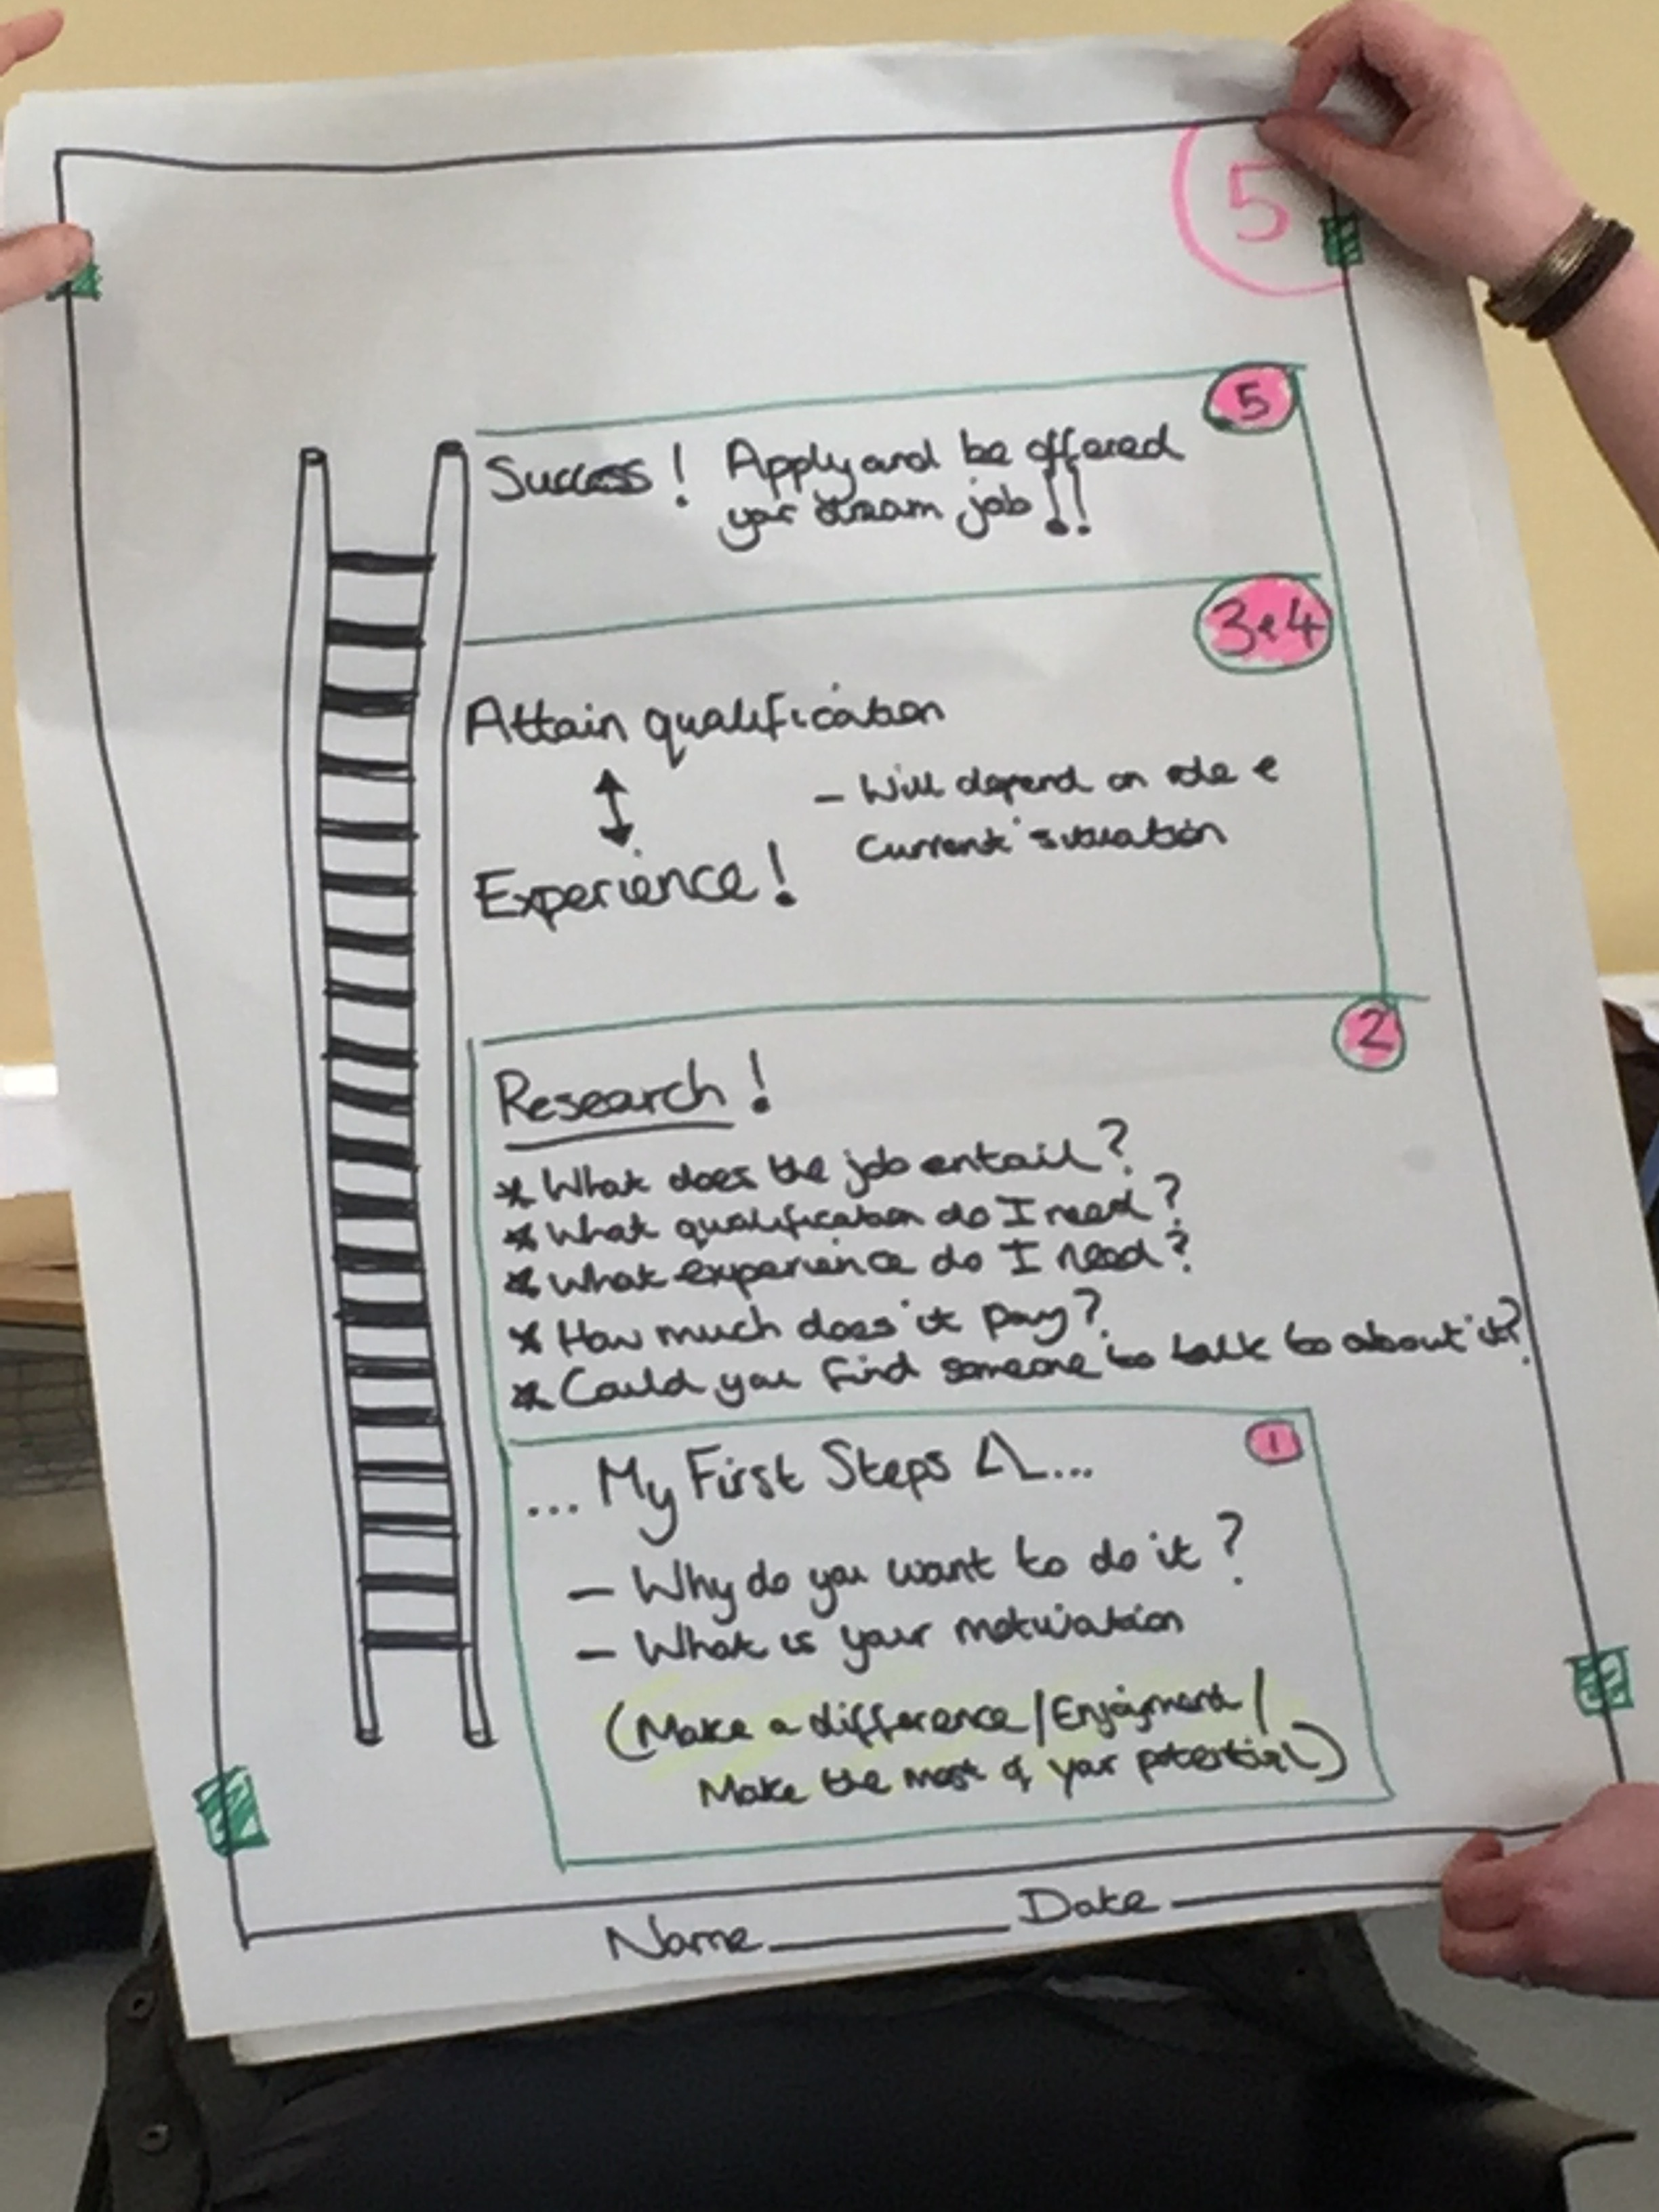 5
5
Success! Apply and be offered
your dream job!!
3 & 4
Attain qualification
- Will depend on role &
Current situation
Experience!
2
Research!
* What does the job entail?
* What qualification do I need?
* What experience do I need?
* How much does it pay?
* Could you find someone to talk to about it?
1
... My First Steps ...
- Why do you want to do it?
- What is your motivation
(Make a difference/Enjoyment/
Make the most of your potential)
Name Date